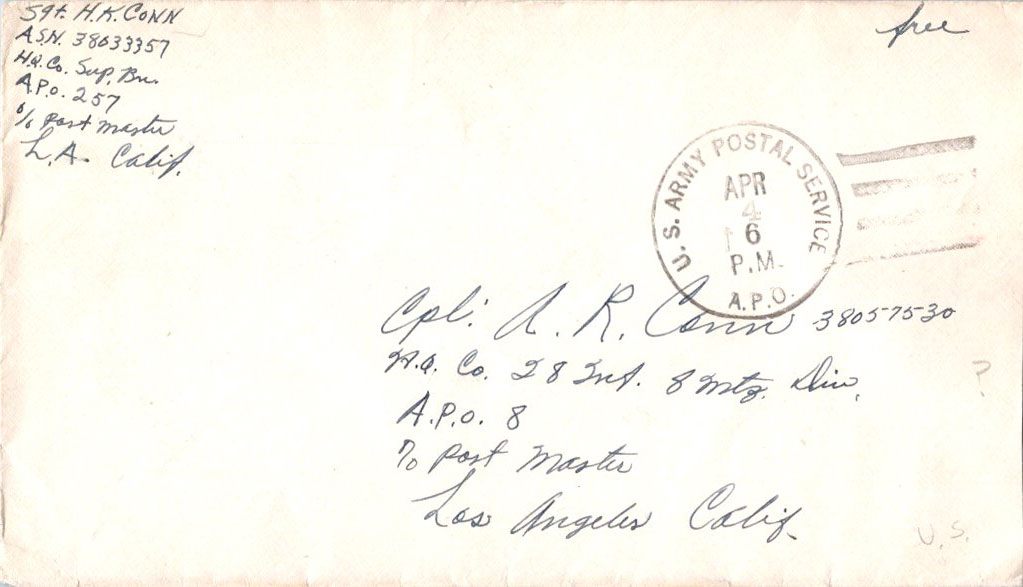 Sgt. H.K. CONN
A.S.N. 38033357
H.Q. Co. Sup. Bn.
A.P.O. 257
c/o Post Master
L.A. Calif.
free
U.S. ARMY POSTAL SERVICE
APR
4
6
P.M.
A.P.O.
Cpl. A. R. Conn 38057530
H.Q. Co. 28 Inf. 8 Mtz. Div.
A.P.O. 8
c/o Post Master
Los Angeles Calif.
?
U.S.